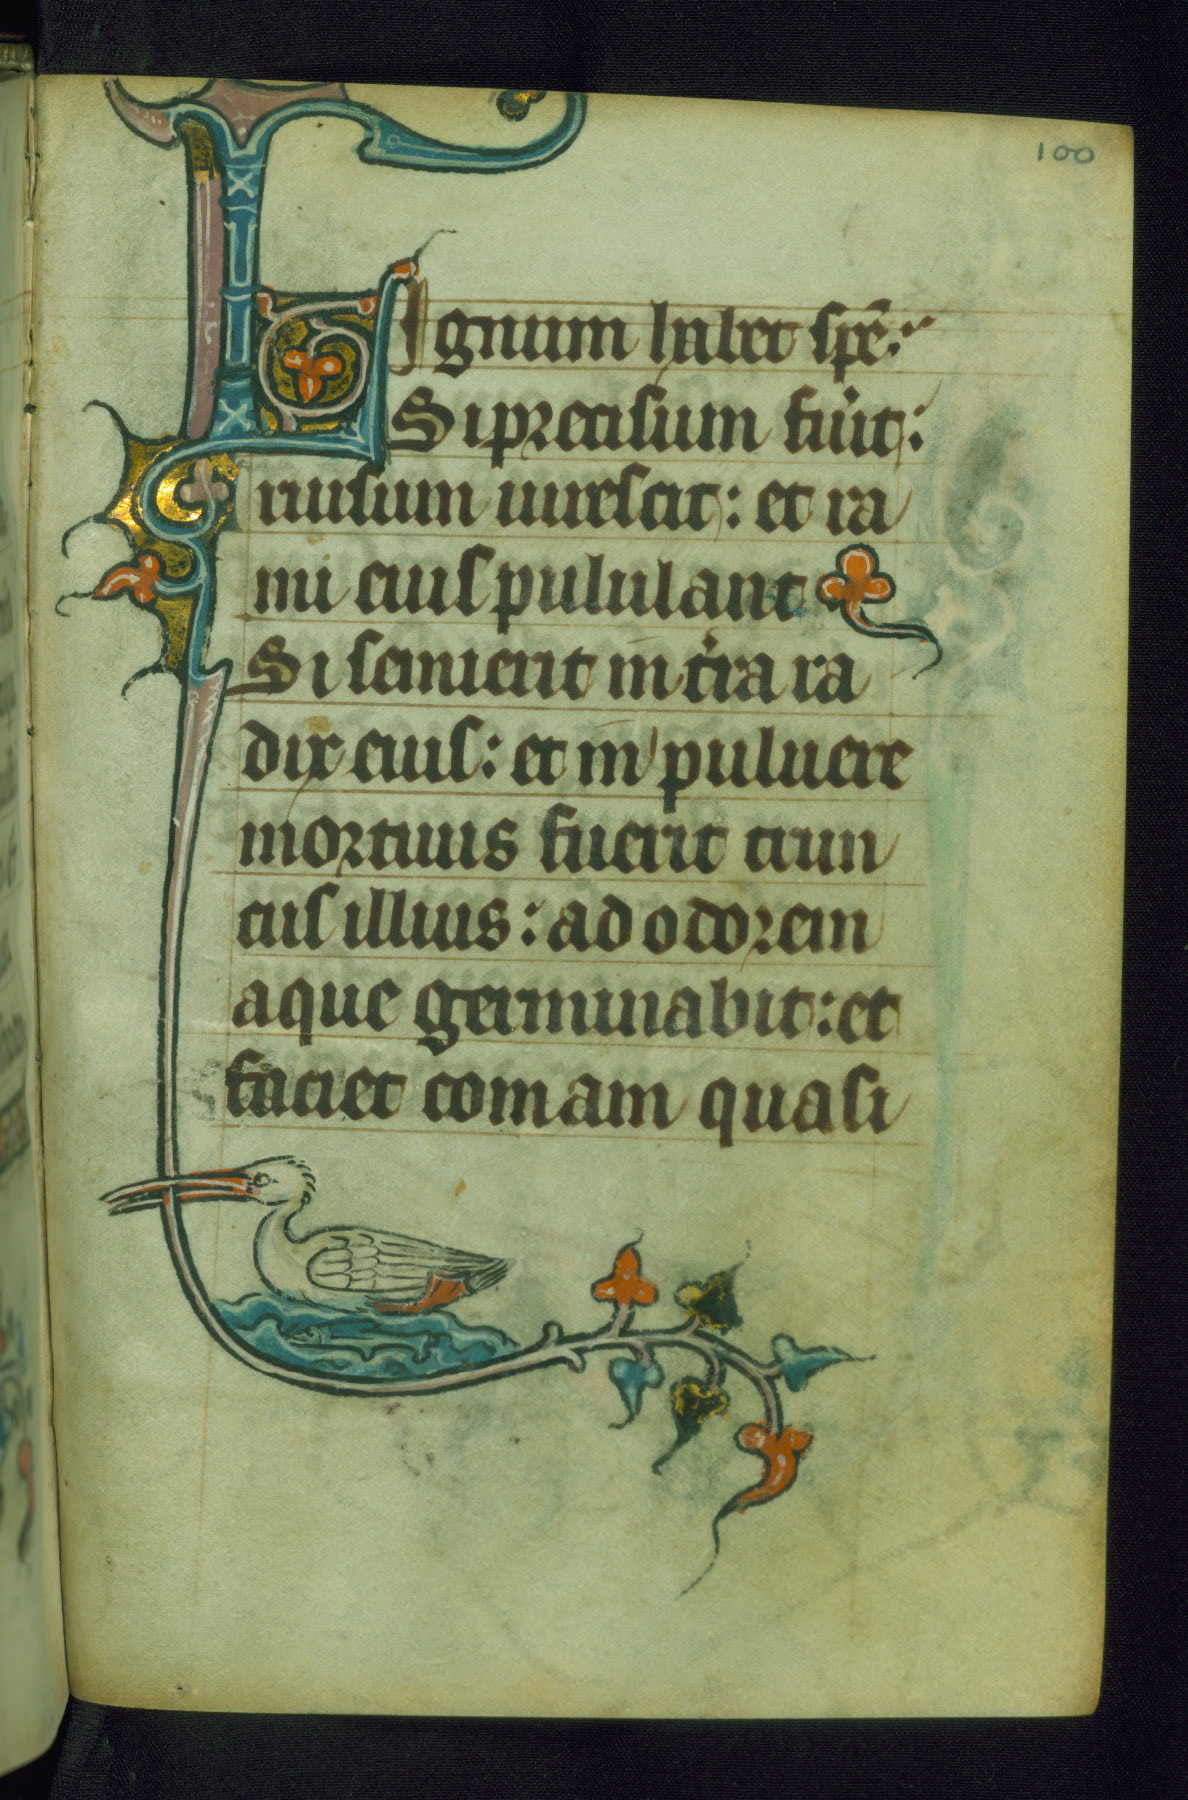 100
LIgnum habet spē:
Si precisum fuit:
rursum uirescit: et ra
mi eius pululant
Si senuerit in tra ra
dix eius: et in puluere
mortuus fuerit trun
cus illius: ad odorem
aque germinabit: et
faciet comam quasi